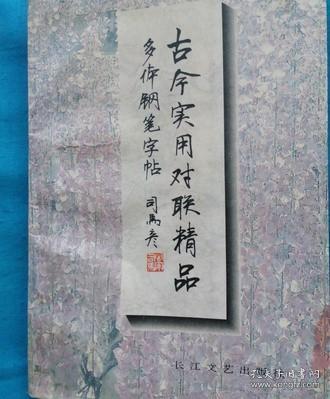 古今实用对联精品
多体钢笔字帖
司马彦
长江文艺出版社
孔夫子旧书网